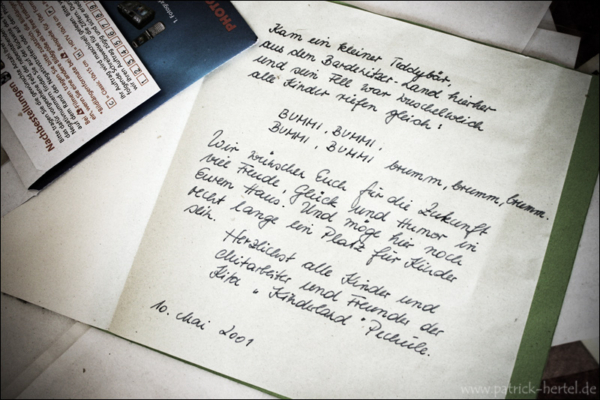 Kam ein kleiner Teddybär
aus dem Bardenitzer-Land hierher
und sein Fell war wuschelweich
alle Kinder rufen gleich:
BUMMI, BUMMI,
BUMMI, BUMMI brumm, brumm, brumm.
Wir wünschen Euch für die Zukunft
viel Freude, Glück und Humor in
Euren Haus. Und möge hier noch
recht lange ein Platz für Kinder
sein.
Herzlichst alle Kinder und
Mitarbeiter und Freunde der
Kita "Kinderland" Pechüle.
10. Mai 2001
PHOTO
Nachbestellungen
www.patrick-hertel.de